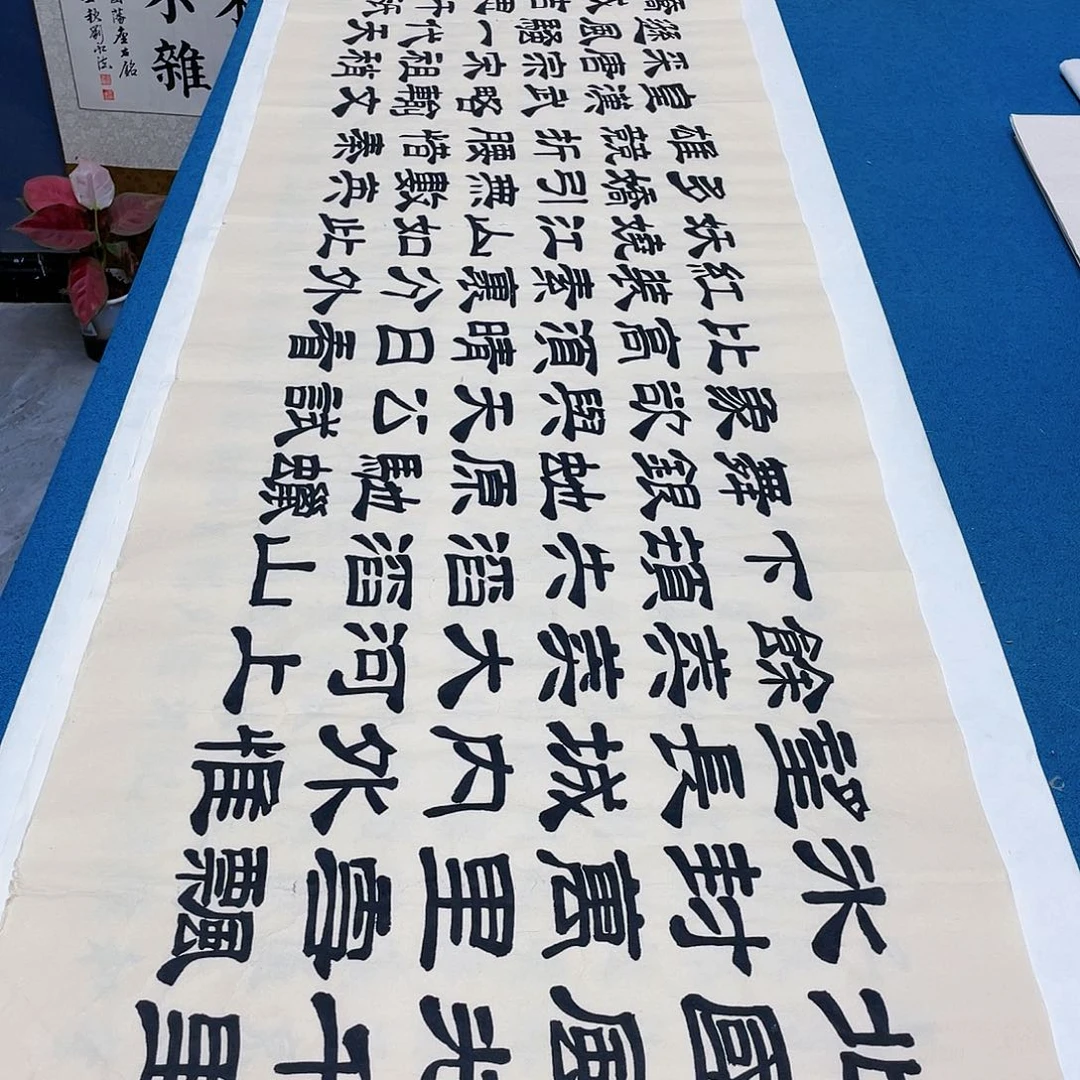 北國風光千里
冰封萬里雪飄
望長城內外惟
餘莽莽大河上
下頓失滔滔山
舞銀蛇原馳蠟
象欲與天公試
比高須晴日看
紅裝素裹分外
妖嬈江山如此
多嬌引無數英
雄競折腰惜秦
皇漢武略輸文
采唐宗宋祖稍
遜風騷一代天
驕成吉思汗
雜